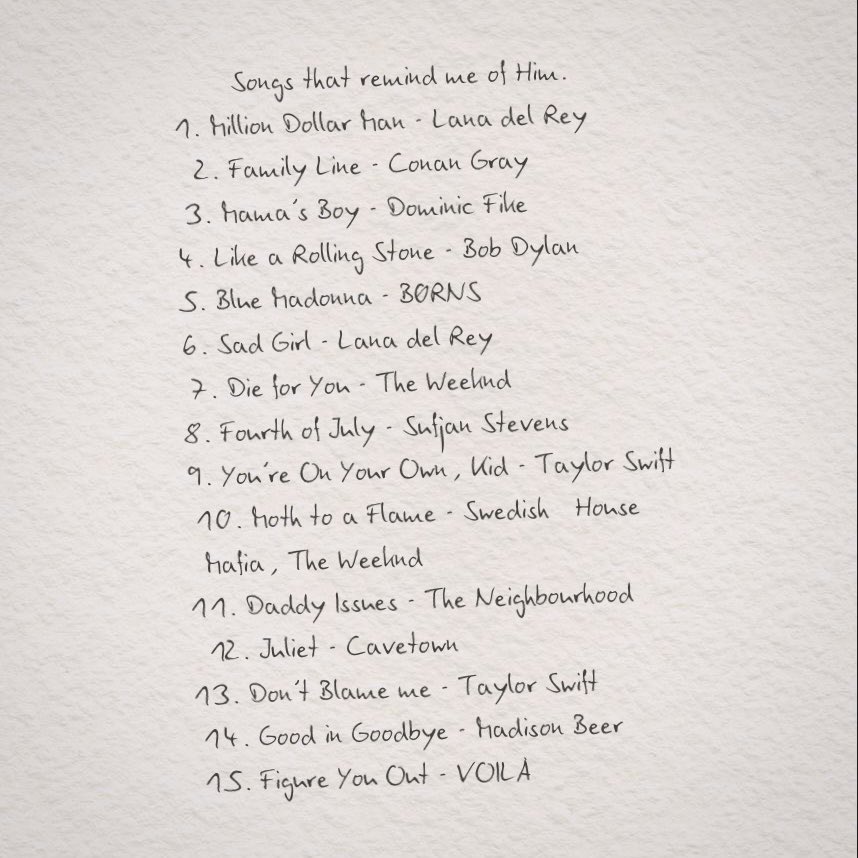 Songs that remind me of Him.
1. Million Dollar Man - Lana del Rey
2. Family Line - Conan Gray
3. Mama's Boy - Dominic Fike
4. Like a Rolling Stone - Bob Dylan
5. Blue Madonna - BØRNS
6. Sad Girl - Lana del Rey
7. Die for You - The Weeknd
8. Fourth of July - Sufjan Stevens
9. You're On Your Own, Kid - Taylor Swift
10. Moth to a Flame - Swedish House
Mafia, The Weeknd
11. Daddy Issues - The Neighbourhood
12. Juliet - Cavetown
13. Don't Blame me - Taylor Swift
14. Good in Goodbye - Madison Beer
15. Figure You Out - VOILÀ